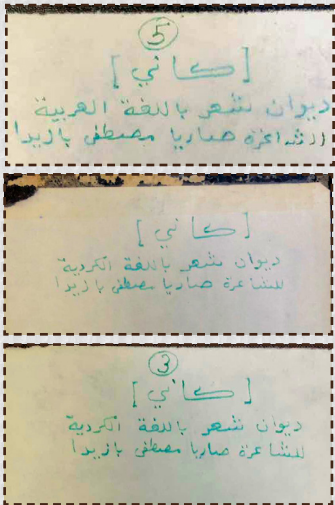 5
[كاني]
ديوان شعر باللغة العربية
الشاعرة صاريا مصطفى بازيدا
[كاني]
ديوان شعر باللغة الكردية
للشاعرة صاريا مصطفى بازيدا
3
[كاني]
ديوان شعر باللغة الكردية
للشاعرة صاريا مصطفى بازيدا